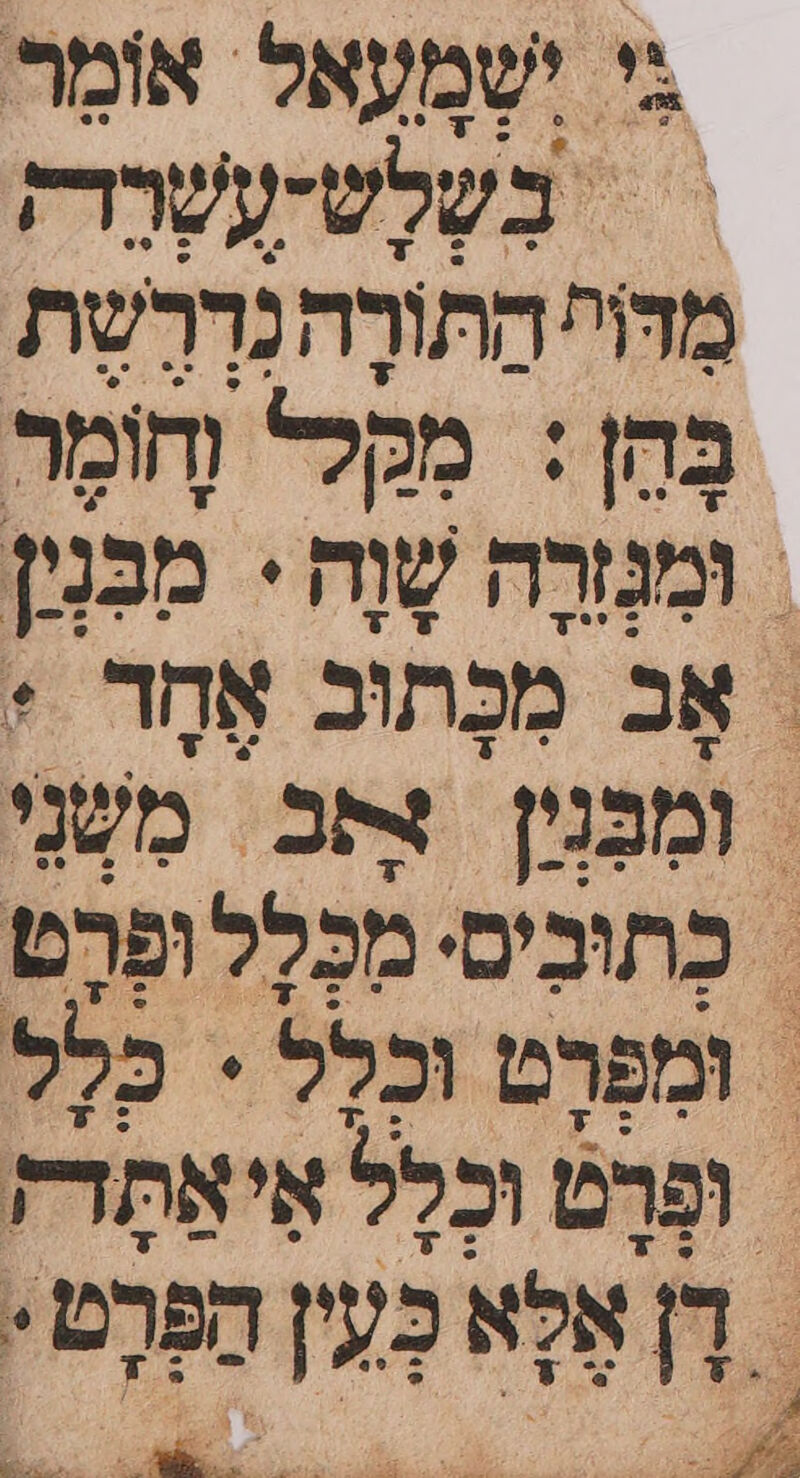 בִּי יִשְׁמָעֵאל אוֹמֵר
בִּשְׁלָשׁ־עֶשְׂרֵה
מִדּוֹת הַתּוֹרָה נִדְרֶשֶׁת
בָּהֵן : מִקַּל וָחוֹמֶר
וּמִגְּזֵרָה שָׁוָה · מִבִּנְיַן
אָב מִכָּתוּב אֶחָד ·
וּמִבִּנְיַן אָב מִשְּׁנֵי
כְתוּבִים · מִכְּלָל וּפְרָט
וּמִפְּרָט וּכְלָל · כְּלָל
וּפְרָט וּכְלָל אִי אַתָּה
דָן אֶלָּא כְּעֵין הַפְּרָט ·